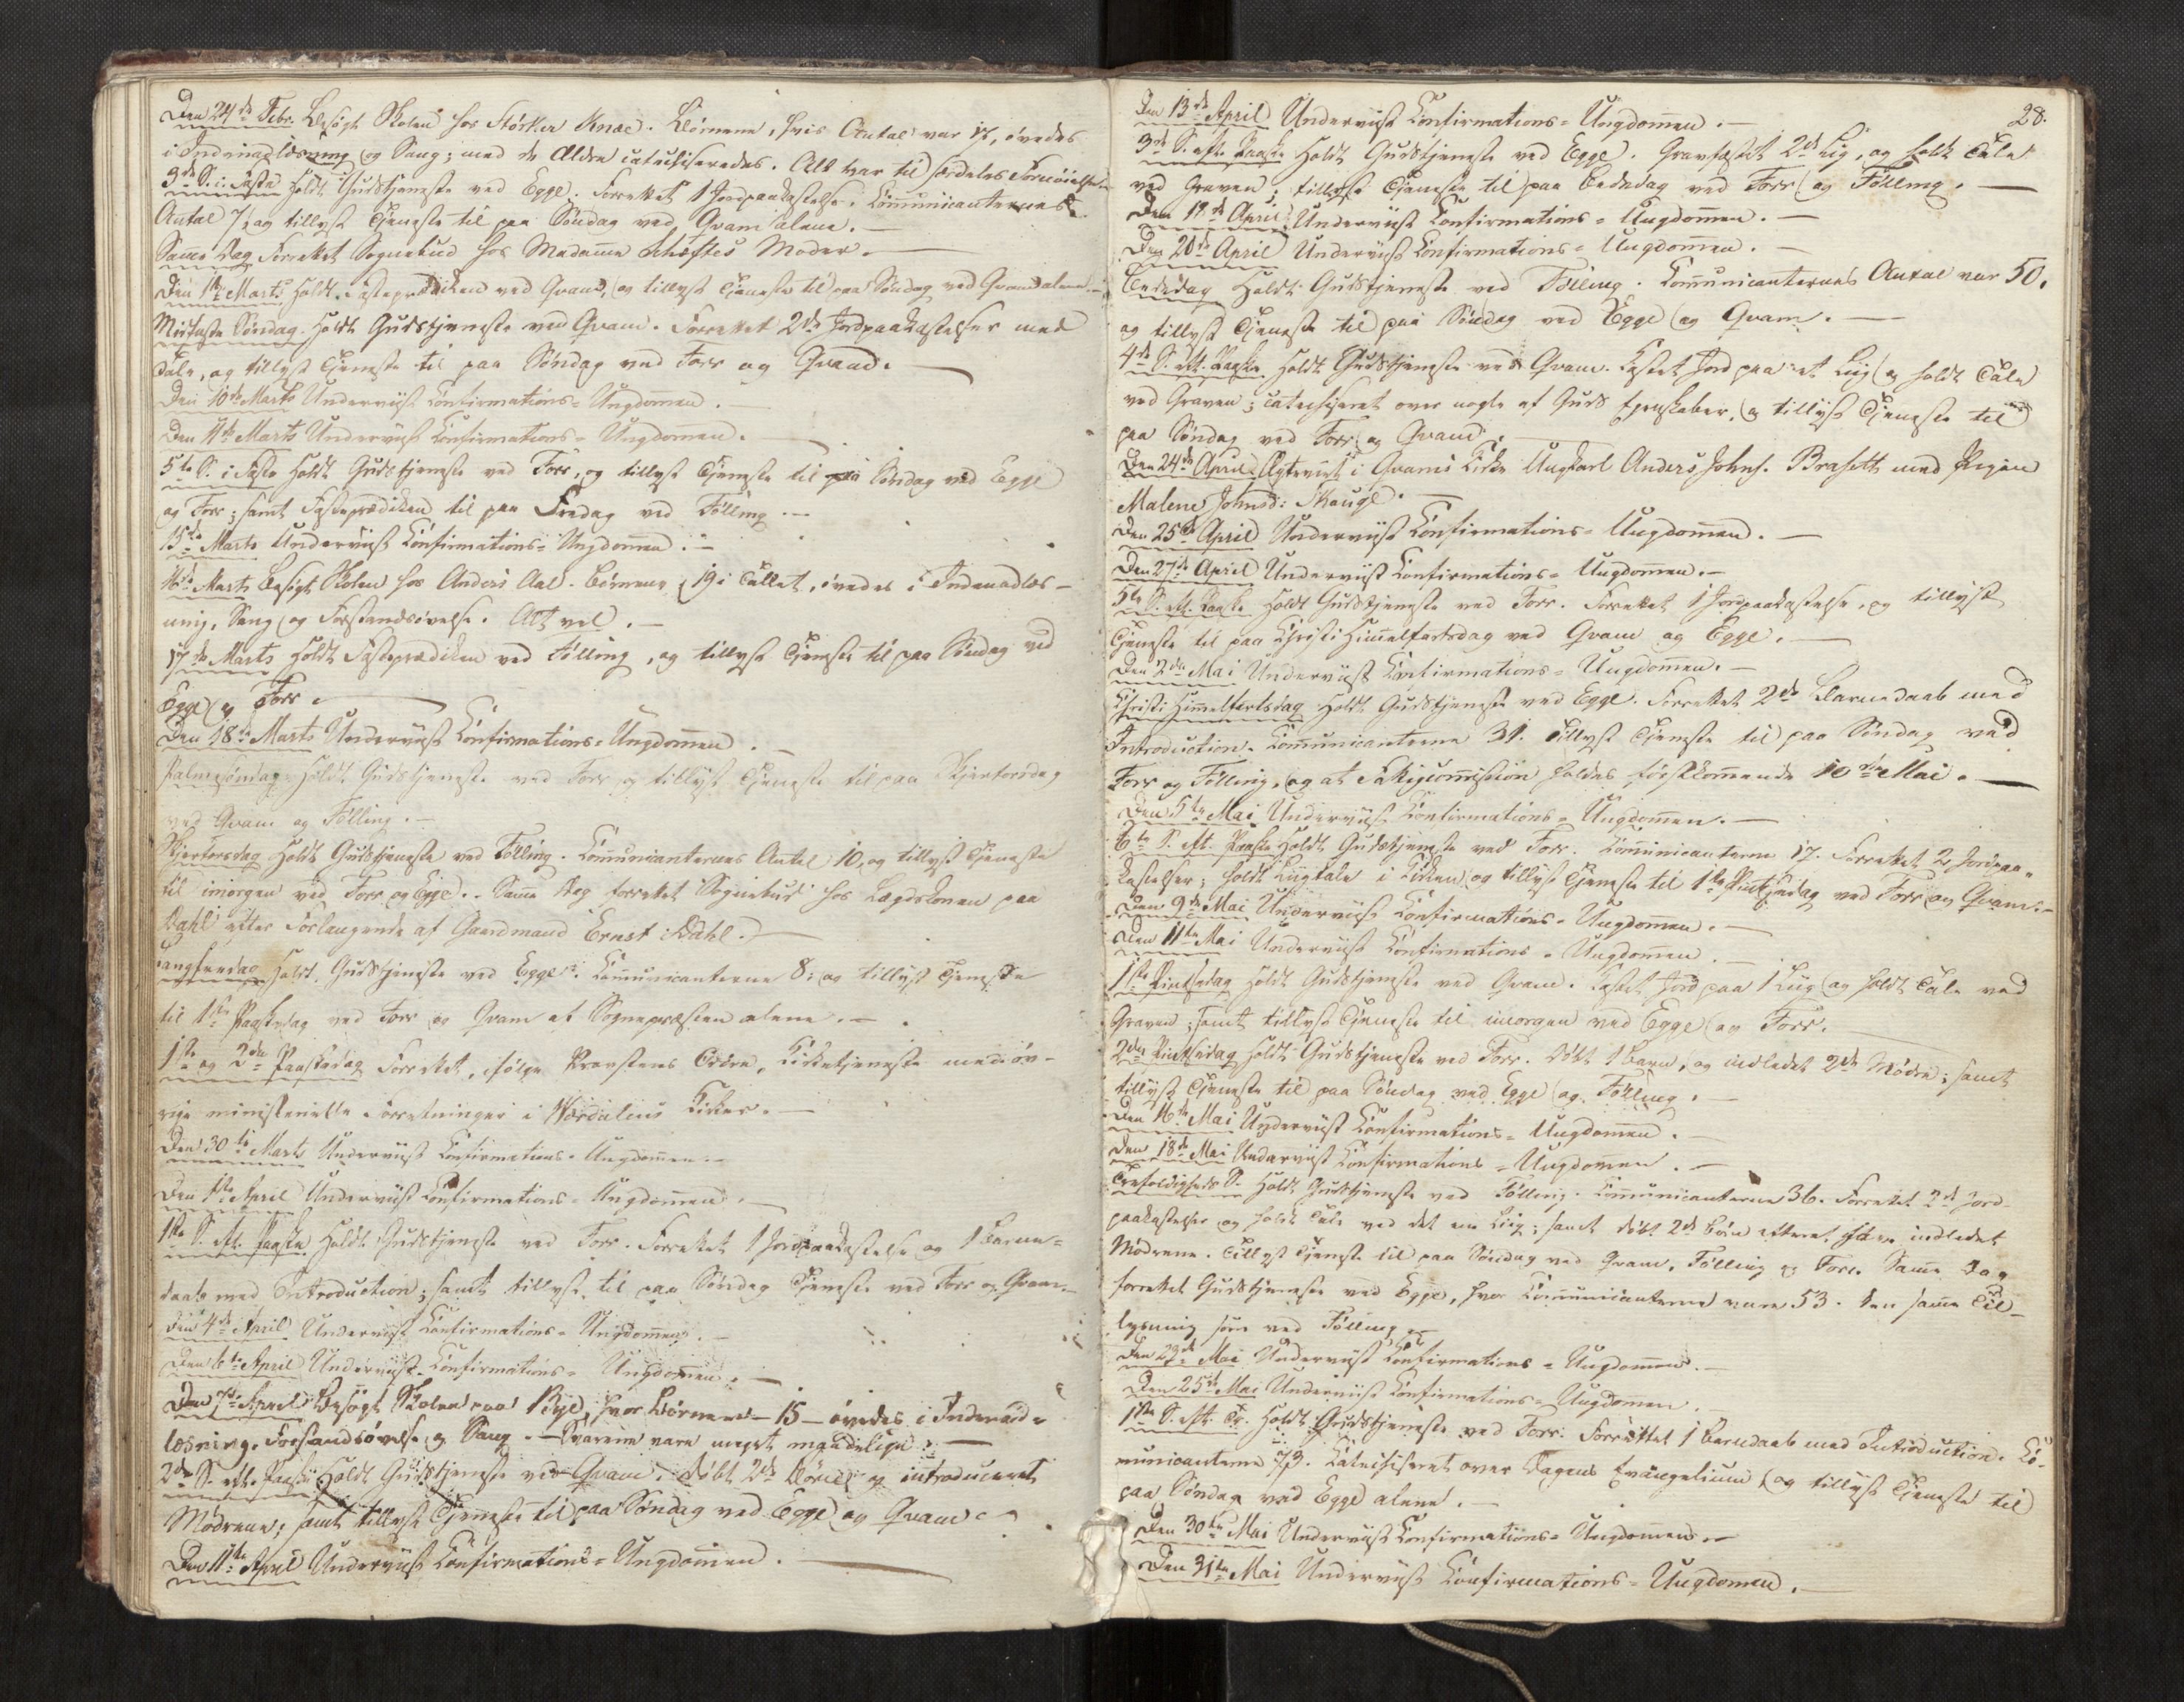 Den 24de Febr. Besögt Skolen hos Störker Knæ. Börnene, hvis Antal var 18, övedes
i Indenadlæsning og Sang; med de Ældre catechiseredes. Alt var til særdeles Fornöielse
3de S. i Faste Holdt Gudstjeneste ved Egge. Forrettet 1 Jordpaakastelse. Communicanternes
Antal 7, og tillyst Tjeneste til paa Söndag ved Qvam alene. –
Samme Dag Forrettet Sognebud hos Madame Moder. –
Den 1ste Marts Holdt Fasteprædiken ved Qvam, og tillyst Tjeneste til paa Söndag ved Qvam alene. –
Midfaste Söndag. Holdt Gudstjeneste ved Qvam. Forrettet 2de Jordpaakastelser med
Tale, og tillyst Tjeneste til paa Söndag ved Forr og Qvam. –
Den 10de Marts Underviist Confirmations-Ungdommen. –
Den 11te Marts Underviist Confirmations-Ungdommen. –
5te S. i Faste Holdt Gudstjeneste ved Forr, og tillyst Tjeneste til paa Söndag ved Egge
og Forr; samt Fasteprædiken til paa Fredag ved Fölling. –
15de Marts Underviist Confirmations-Ungdommen. –
16de Marts Besögt Skolen hos Anders Aal. Börnene, 19 i Tallet, övedes i Indenadlæs-
ning, Sang og Forstandsövelse. Alt vel. –
17de Marts Holdt Fasteprædiken ved Fölling, og tillyst Tjeneste til paa Söndag ved
Egge og Forr. –
Den 18de Marts Underviist Confirmations-Ungdommen. –
Palmesöndag Holdt Gudstjeneste ved Forr og tillyst Tjeneste til paa Skjertorsdag
ved Qvam og Fölling. –
Skjertorsdag Holdt Gudstjeneste ved Fölling. Communicanternes Antal 10, og tillyst Tjeneste
til imorgen ved Forr og Egge. Samme Dag forrettet Sognebud hos Lægdskonen paa
Dahl efter Forlangende af Gaardmand Ernst Dahl. –
Langfredag Holdt Gudstjeneste ved Egge. Communicanterne 8; og tillyst Tjeneste
til 1ste Paaskedag ved Forr og Qvam af Sognepræsten alene. –
1ste og 2den Paaskedag Forrettet, ifölge Provstens Ordre, Kirketjeneste med öv-
rige ministerielle Forretninger i Værdalens Kirker. –
Den 30te Marts Underviist Confirmations-Ungdommen. –
Den 1ste April Underviist Confirmations-Ungdommen. –
1ste S. eft. Paaske Holdt Gudstjeneste ved Forr. Forrettet 1 Jordpaakastelse og 1 Barne-
daab med Introduction; samt tillyst til paa Söndag Tjeneste ved Forr og Qvam. –
Den 4de April Underviist Confirmations-Ungdommen. –
Den 6te April Underviist Confirmations-Ungdommen. –
Den 7de April Besögt Skolen paa Bye, hvor Börnene – 15 – övedes i Indenad-
læsning, Forstandsövelse og Sang. – Svarene vare meget maadelige. –
2de S. eft. Paaske Holdt Gudstjeneste ved Qvam, döbt 2de Börn og introduceret
Mödrene; samt tillyst Tjeneste til paa Söndag ved Egge og Qvam.
Den 11te April Underviist Confirmations-Ungdommen. –
28.
Den 13de April Underviist Confirmations-Ungdommen. –
3de S. eft. Paaske Holdt Gudstjeneste ved Egge. Gravfæstet 2de Lig, og holdt Tale
ved Graven; tillyst Tjeneste til paa Bededag ved Forr og Fölling. –
Den 18de April Underviist Confirmations-Ungdommen. –
Den 20de April Underviist Confirmations-Ungdommen. –
Bededag Holdt Gudstjeneste ved Fölling. Communicanternes Antal var 50,
og tillyst Tjeneste til paa Söndag ved Egge og Qvam. –
4de S. eft. Paaske Holdt Gudstjeneste ved Qvam. Kastet Jord paa et Liig og holdt Tale
ved Graven; catechiseret over nogle af Guds Egenskaber, og tillyst Tjeneste til
paa Söndag ved Forr og Qvam. –
Den 24de April Egteviet i Qvams Kirke Ungkarl Anders Johns. Brasett med Pigen
Malene Johnsd: Skauge. –
Den 25de April Underviist Confirmations-Ungdommen. –
Den 27de April Underviist Confirmations-Ungdommen. –
5te S. eft. Paaske Holdt Gudstjeneste ved Forr. Forrettet 1 Jordpaakastelse, og tillyst
Tjeneste til paa Christi Himmelfartsdag ved Qvam og Egge. –
Den 2den Mai Underviist Confirmations-Ungdommen. –
Christi Himmelfartsdag Holdt Gudstjeneste ved Egge. Forrettet 2de Barnedaab med
Introduction. Communicanterne 31. Tillyst Tjeneste til paa Söndag ved
Forr og Fölling, og at Fattigcommission holdes förstkommende 10de Mai. –
Den 5te Mai Underviist Confirmations-Ungdommen. –
6te S. eft. Paaske Holdt Gudstjeneste ved Forr. Communicanterne 17. Forrettet 2 Jordpaa-
kastelser; holdt Liigtale i Kirken og tillyst Tjeneste til 1ste Pintsedag ved Forr og Qvam. –
Den 9de Mai Underviist Confirmations-Ungdommen. –
Den 11te Mai Underviist Confirmations-Ungdommen. –
1ste Pintsedag Holdt Gudstjeneste ved Qvam. Kastet Jord paa 1 Liig og holdt Tale ved
Graven; samt tillyst Tjeneste til imorgen ved Egge og Forr.
2den Pintsedag Holdt Gudstjeneste ved Forr. Döbt 1 Barn, og indledet 2de Mödre; samt
tillyst Tjeneste til paa Söndag ved Egge og Fölling. –
Den 16de Mai Underviist Confirmations-Ungdommen. –
Den 18de Mai Underviist Confirmations-Ungdommen. –
Trefoldigheds S. Holdt Gudstjeneste ved Fölling. Communicanterne 36. Forrettet 2de Jord-
paakastelser og holdt Tale ved det ene Liig; samt döbt 2de Börn indledet
Mödrene. Tillyst Tjeneste til paa Söndag ved Qvam, Fölling og Forr. Samme Dag
forrettet Gudstjeneste ved Egge, hvor Communicanterne vare 53. Den samme Til-
lysning som ved Fölling.
Den 23de Mai Underviist Confirmations-Ungdommen. –
Den 25de Mai Underviist Confirmations-Ungdommen. –
1ste S. eft. Tr. Holdt Gudstjeneste ved Forr. Forrettet 1 Barnedaab med Introduction. Co-
municanterne 73. Catechiseret over Dagens Evangelium og tillyst Tjeneste til
paa Söndag ved Egge alene. –
Den 30te Mai Underviist Confirmations-Ungdommen. –
Den 31te Mai Underviist Confirmations-Ungdommen. –